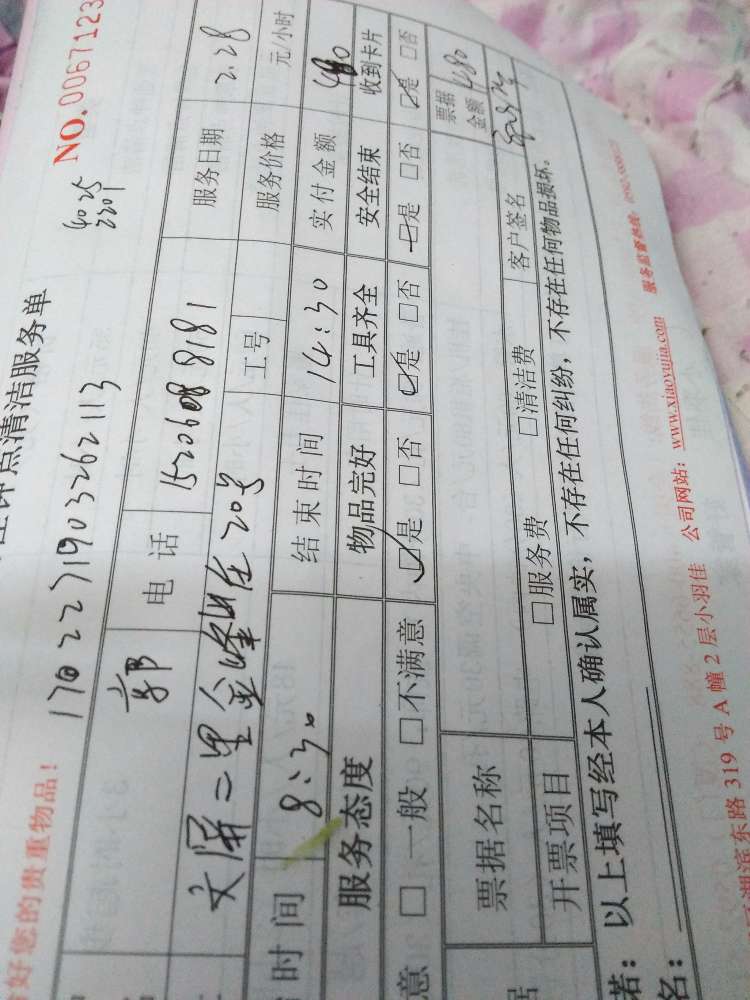 保管好您的贵重物品!
钟点清洁服务单 NO.0067123
170227190326211​3 4025
2201
郭 电话 15206088181 服务日期 2.28
文屏二里金峰庄20号 工号 服务价格 元/小时
时间 8:30 结束时间 14:30 实付金额 480
服务态度 物品完好 工具齐全 安全结束 收到卡片
意 □一般 □不满意 □是 □否 □是 □否 □是 □否 □是 □否
票据名称 票据金额 480
开票项目 □服务费 □清洁费 客户签名
若:以上填写经本人确认属实,不存在任何纠纷,不存在任何物品损坏。
名:
湖滨东路 319 号 A 幢 2 层小羽佳 公司网站:www.xiaoyujia.com 服务监督热线: